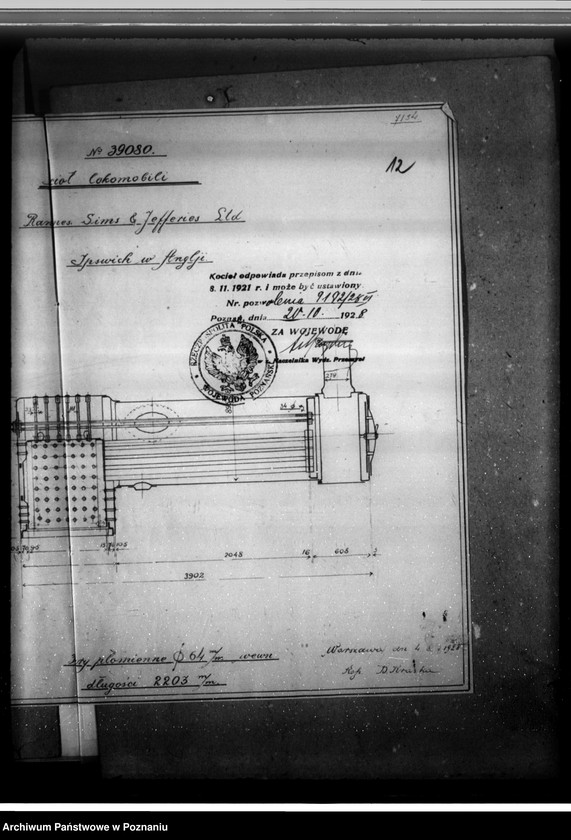 7134
12
No 39080.
kocioł lokomobili
Ransomes Sims & Jefferies Ltd
Ipswich w Anglji
Kocioł odpowiada przepisom z dnia
8. 11. 1921 r. i może być ustawiony.
Nr. pozwolenia 9192/28
Poznań, dnia 20.10. 1928
ZA WOJEWODĘ
Naczelnika Wydz. Przemysł
RZECZPOSPOLITA POLSKA
WOJEWODA POZNAŃSKI
2048
16
608
3902
Rury płomienne ϕ 64 m/m wewn
długości 2203 m/m.
Warszawa dn
Kop.
Archiwum Państwowe w Poznaniu